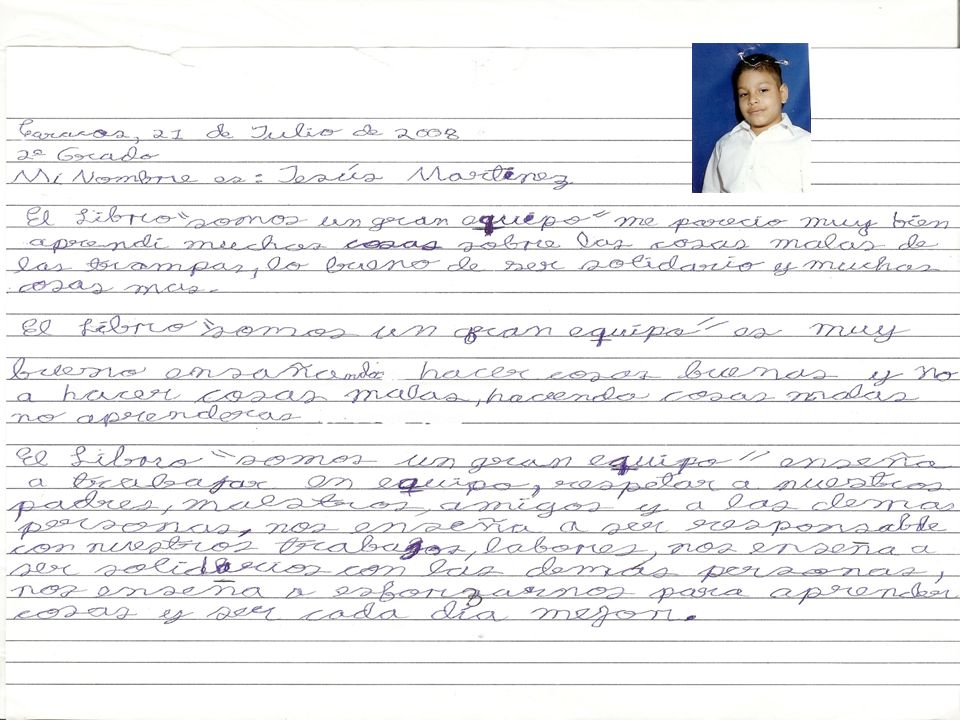 Caracas, 21 de Julio de 2008
2º Grado
Mi Nombre es: Jesús Martínez
El Libro "somos un gran equipo" me parecio muy bien
aprendi muchas cosas sobre las cosas malas de
las trampas, lo bueno de ser solidario y muchas
cosas mas.
El Libro "somos un gran equipo" es muy
bueno ensañando hacer cosas buenas y no
a hacer cosas malas, haciendo cosas malas
no aprenderas
El Libro "somos un gran equipo" enseña
a trabajar en equipo, respetar a nuestros
padres, maestros, amigos y a las demas
personas, nos enseña a ser responsable
con nuestros trabajos, labores, nos enseña a
ser solidarios con las demás personas,
nos enseña a esforzarnos para aprender
cosas y ser cada día mejor.